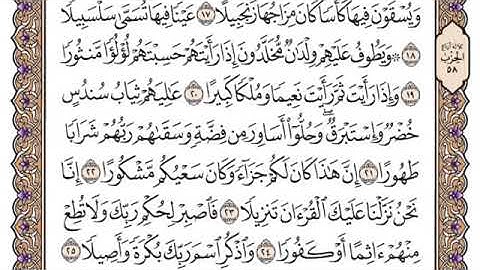 وَيُسْقَوْنَ فِيهَا كَأْسًا كَانَ مِزَاجُهَا زَنجَبِيلًا ١٧ عَيْنًا فِيهَا تُسَمَّىٰ سَلْسَبِيلًا
١٨ ۞ وَيَطُوفُ عَلَيْهِمْ وِلْدَٰنٌ مُّخَلَّدُونَ إِذَا رَأَيْتَهُمْ حَسِبْتَهُمْ لُؤْلُؤًا مَّنثُورًا
١٩ وَإِذَا رَأَيْتَ ثَمَّ رَأَيْتَ نَعِيمًا وَمُلْكًا كَبِيرًا ٢٠ عَٰلِيَهُمْ ثِيَابُ سُندُسٍ
خُضْرٌ وَإِسْتَبْرَقٌ ۖ وَحُلُّوٓا۟ أَسَاوِرَ مِن فِضَّةٍ وَسَقَىٰهُمْ رَبُّهُمْ شَرَابًا
طَهُورًا ٢١ إِنَّ هَٰذَا كَانَ لَكُمْ جَزَآءً وَكَانَ سَعْيُكُم مَّشْكُورًا ٢٢ إِنَّا
نَحْنُ نَزَّلْنَا عَلَيْكَ ٱلْقُرْءَانَ تَنزِيلًا ٢٣ فَٱصْبِرْ لِحُكْمِ رَبِّكَ وَلَا تُطِعْ
مِنْهُمْ ءَاثِمًا أَوْ كَفُورًا ٢٤ وَٱذْكُرِ ٱسْمَ رَبِّكَ بُكْرَةً وَأَصِيلًا ٢٥
الحزب
٥٨